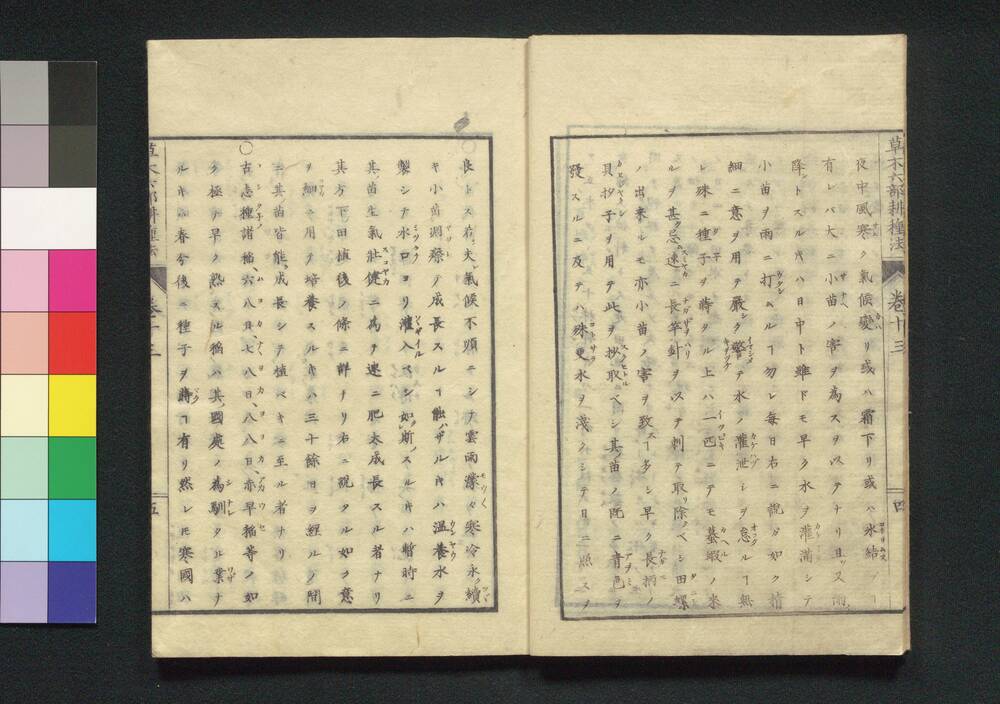 草木六部耕種法 卷十三 四
夜中風寒ク氣候變リ或ハ霜下リ或ハ氷結フ
有レバ大ニ小苗ノ害ヲ為スヲ以テナリ且ツ又雨
降ントスルキハ日中ト雖ドモ早ク水ヲ灌滿シテ
小苗ヲ雨ニ打ムルヿ勿レ每日右ニ說ガ如ク精
細ニ意ヲ用テ嚴シク警テ水ノ灌泄シヲ怠ルヿ無
レ殊ニ種子ヲ蒔タル上ハ一匹ニテモ蟇蝦ノ來
ルヲ甚ク忌速ニ長竿針ヲ以テ刺テ取除ノベシ田螺
ノ出来ルモ亦小苗ノ害ヲ致スヿ多シ早ク長柄ノ
貝抄子ヲ用テ此ヲ抄取ベシ其苗ノ既ニ青色ヲ
發スルニ及テハ殊更水ヲ淺クシテ日ニ照スヲ
良トス若シ天氣候不順ニシテ雲雨濛々寒冷永ク續
キ小苗凋瘵テ成長スルヿ能ハザルキハ溫養水ヲ
製シテ水口ヨリ灌入ベシ如斯ノスルキハ暫時ニ
其苗生氣壯健ニ為テ速ニ肥太成長スル者ナリ
其方下田植後ノ條ニ詳ナリ右ニ說タル如ク意
ヲ細ニ用テ培養スルキハ三十餘日ヲ經ルノ間
ニ其苗皆能ク成長シテ植ベキニ至ル者ナリ
○古志種諸稻六八日七八日八八日赤早稻等ノ如
ク極テ早ク熟スル稻ハ其國處ノ為馴タル業ナ
ルキハ春分後ニ種子ヲ蒔ヿ有リ然レ𪜈寒國ハ
草木六部耕種法 卷十三 五